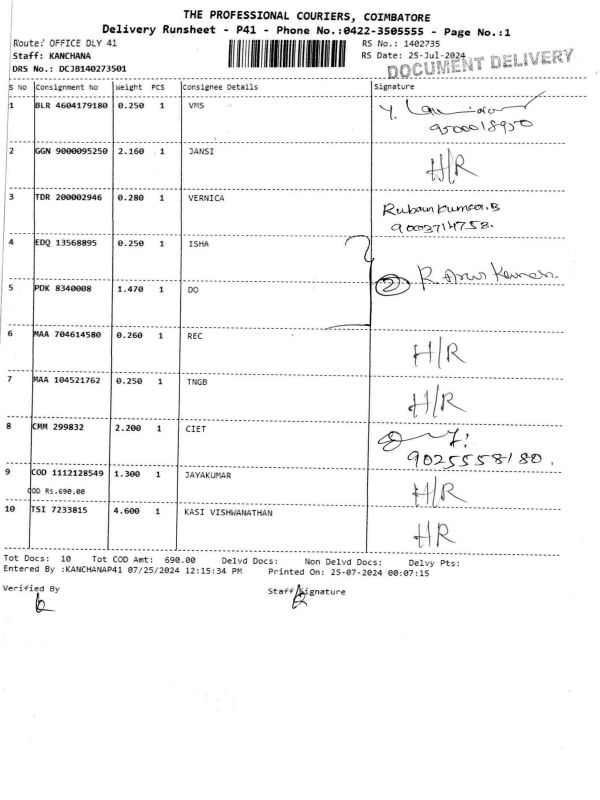 THE PROFESSIONAL COURIERS, COIMBATORE
Delivery Runsheet - P41 - Phone No.:0422-3505555 - Page No.:1
Route: OFFICE DLY 41 RS No.: 1402735
Staff: KANCHANA RS Date: 25-Jul-2024
DRS No.: DCJB140273501
DOCUMENT DELIVERY
S No Consignment No Weight PCS Consignee Details Signature
1 BLR 4604179180 0.250 1 VMS
9500018950
2 GGN 9000095250 2.160 1 JANSI H/R
3 TDR 200002946 0.280 1 VERNICA Rubankumar.B
9003714758.
4 EDQ 13568895 0.250 1 ISHA
5 PDK 8340008 1.470 1 DO 2 R. Arun Kumar.
6 MAA 704614580 0.260 1 REC H/R
7 MAA 104521762 0.250 1 TNGB H/R
8 CMM 299832 2.200 1 CIET
9025558180.
9 COD 1112128549 1.300 1 JAYAKUMAR H/R
COD Rs.690.00
10 TSI 7233815 4.600 1 KASI VISHWANATHAN HR
Tot Docs: 10 Tot COD Amt: 690.00 Delvd Docs: Non Delvd Docs: Delvy Pts:
Entered By :KANCHANAP41 07/25/2024 12:15:34 PM Printed On: 25-07-2024 00:07:15
Verified By Staff Signature